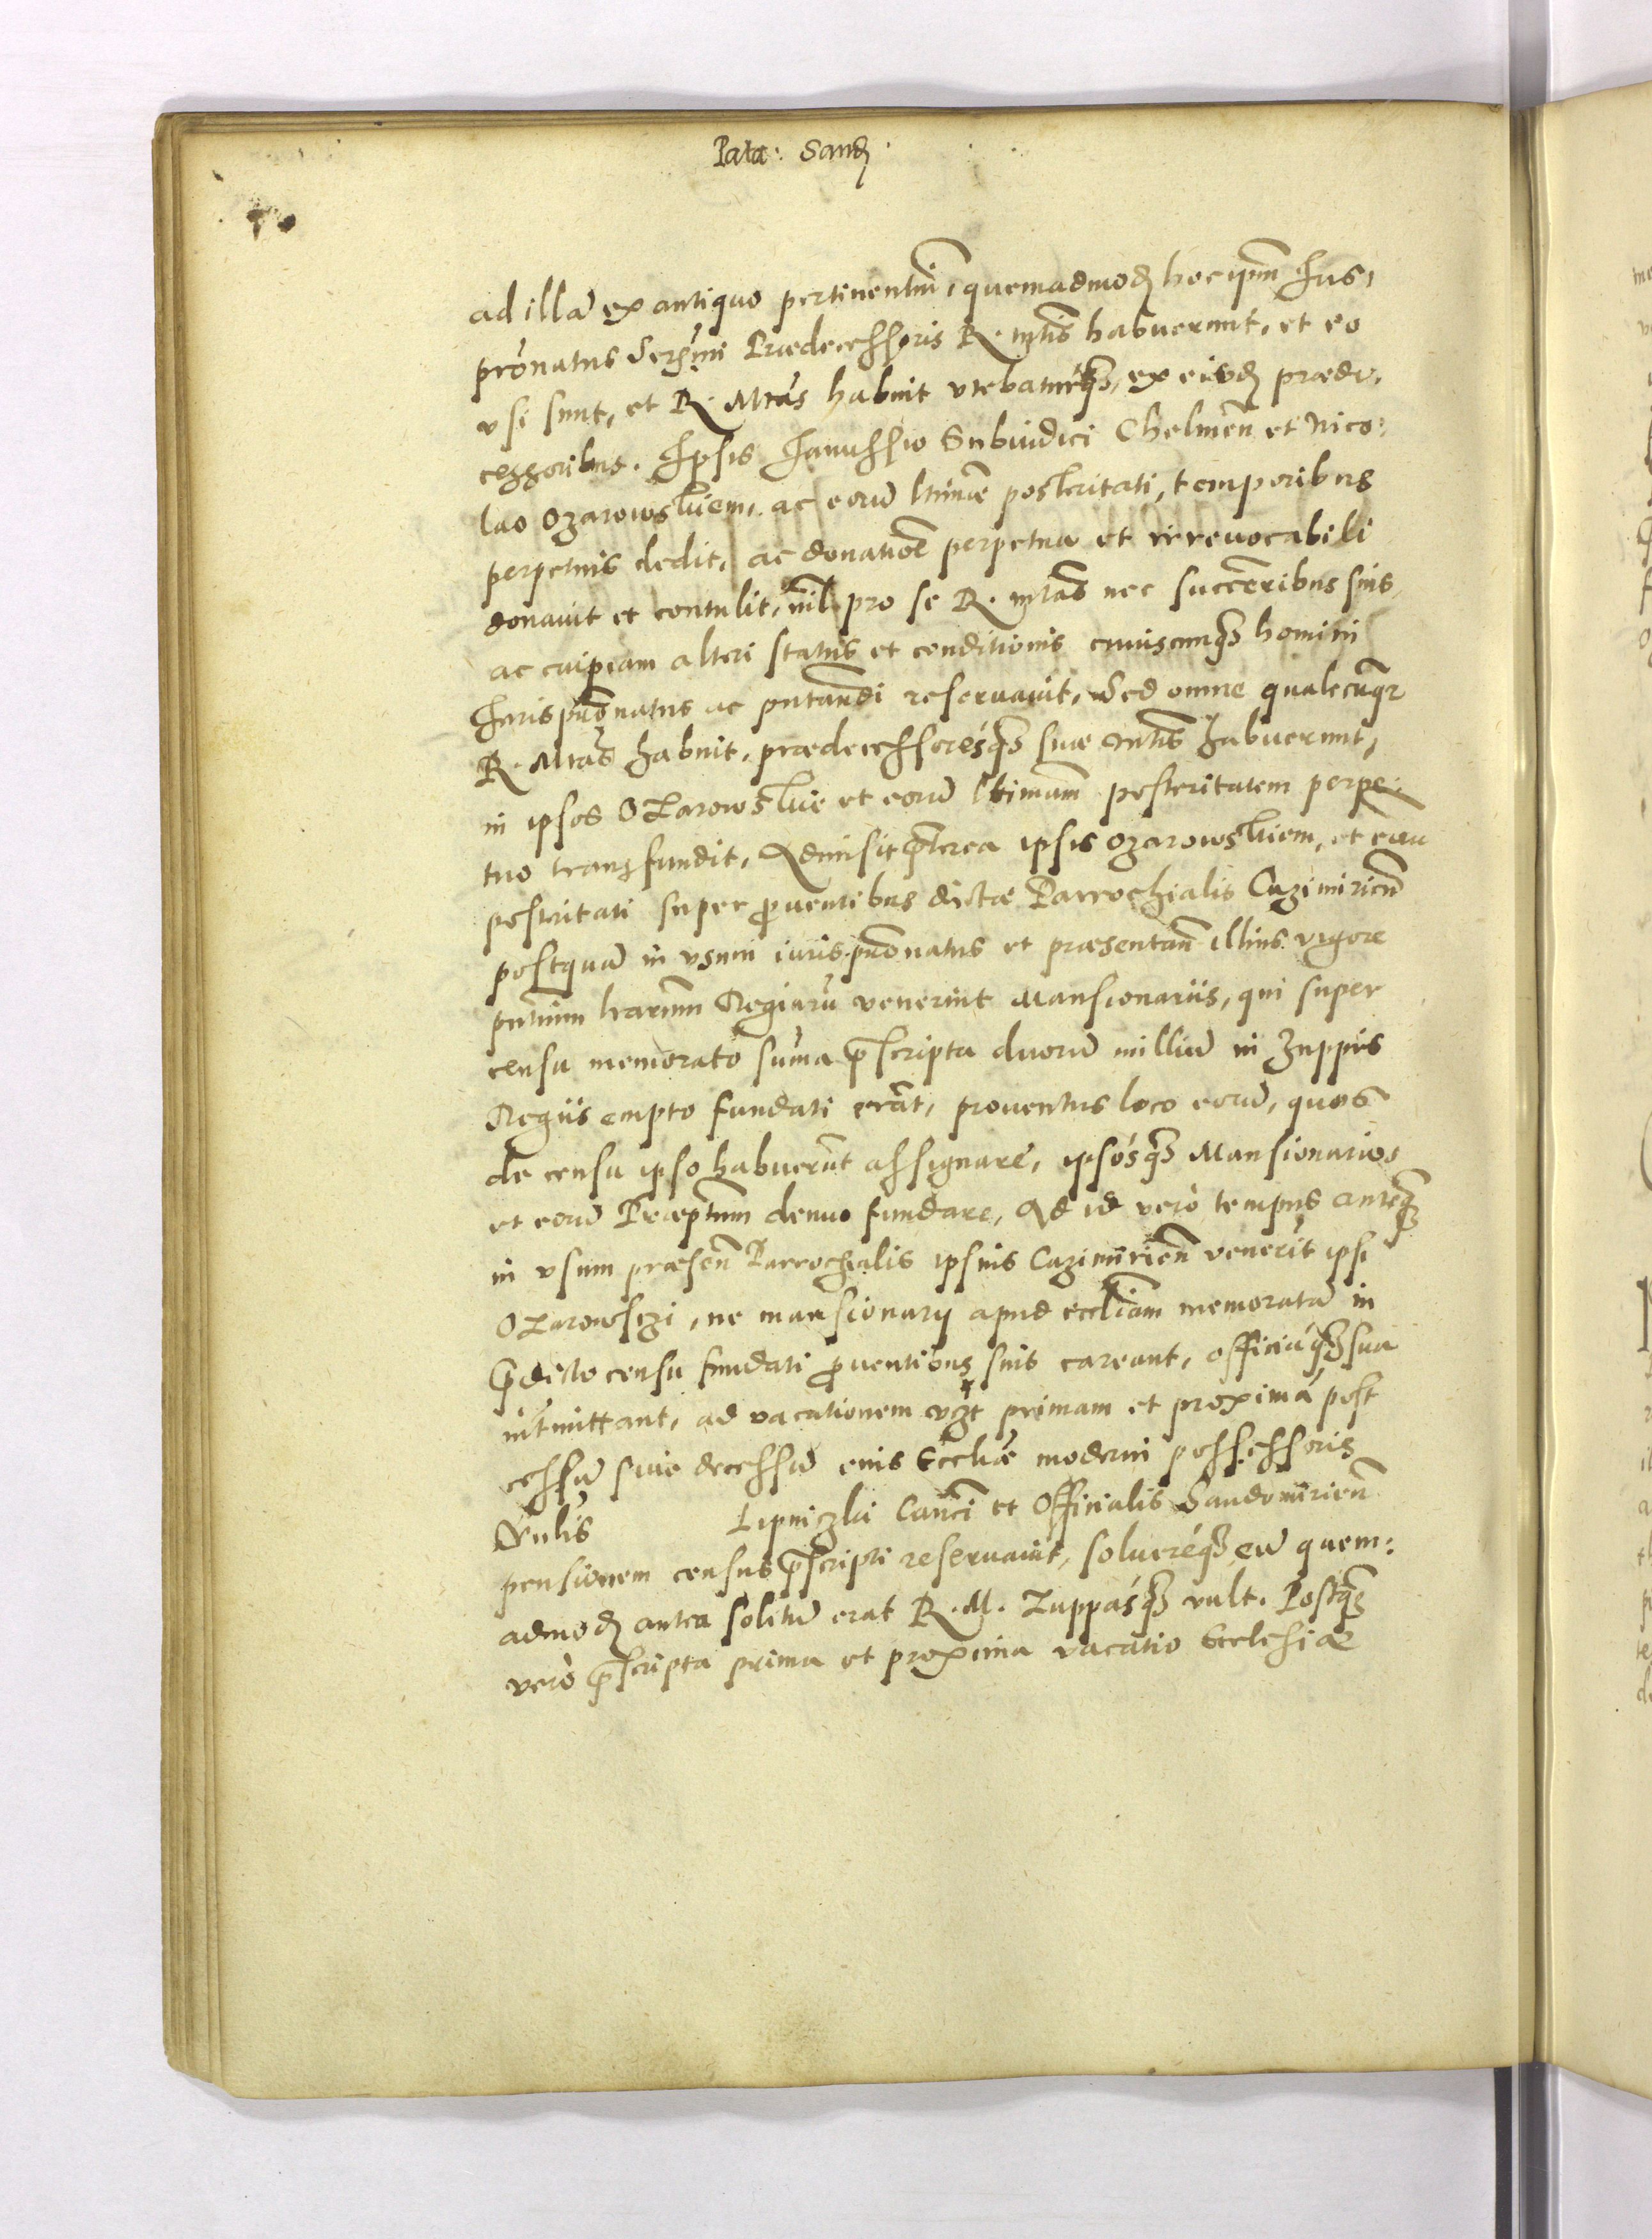 Pala: Sand
ad illā ex antiquo pertinentiū, quemadmod hoc ipm Ius,
prōnatus Serēmi Prædecessoris R. Mtis habuerunt, et eo
vsi sunt, et R. Mtas habuit vtebaturq, ex eisd præde,
cessoribus. Ipsis Janussio Subiudici Chelmeñ et Nico:
lao Ozarowskiem, ac eorū ltimæ posteritati, temporibus
perpetuis dedit, ac donatioe perpetua et irreuocabili
donauit et contulit, nil pro se R. Mtas nec succeoribus suis
ac cuipiam alteri status et conditionis cuiuscumq homini
Iuris prōnatus ac pntandi reseruauit, Sed omne qualecuqz
R. Mtas habuit, prædecessoresq suæ Mtis habuerunt,
in ipsos Ozarowskie et eorū ltimam posteritatem perpe,
tuo transfundit, Admisit pterea ipsis Ozarowskiem, et eorū
posteritati super prouentibus dictæ Parrochialis Cazimirień
postquā in vsum iuris prōnatus et præsentań illius vigore
pntium lrarum Regiarū venerint Mansionariis, qui super
censu memorato suma pscripta duorū milliū in Zuppis
Regiis empto fundati erāt, prouentus loco eorū, quos
de censu ipso habuerūt assignare, ipsosq Mansionarios
et eorū Præptum denuo fundare, Ad id vero tempus anteq
in vsum præseń Parrochialis ipsius Cazimirień venerit ipsi
Ozarowsczi, ne mansionarij apud eccliam memoratā in
pdicto censu fundati prouentibus suis careant, officiaq sua
intmittant, ad vacationem vzt primam et proximā post
cessū siue decessū eius Eccliæ moderni possessoris
Vnlis Lipniczki Canci et Officialis Sandomirień
pensionem census pscripti reseruauit, soluereq eū quem:
admod antea solitū erat R. M. Zuppasq vult. Postq
vero pscripta prima et proxima vacatio Ecclesiæ